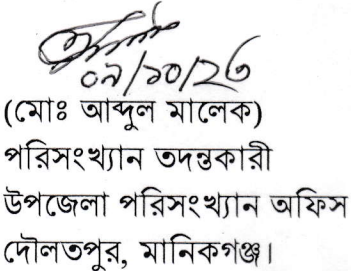 ০৯/১০/২৩
(মোঃ আব্দুল মালেক)
পরিসংখ্যান তদন্তকারী
উপজেলা পরিসংখ্যান অফিস
দৌলতপুর, মানিকগঞ্জ।